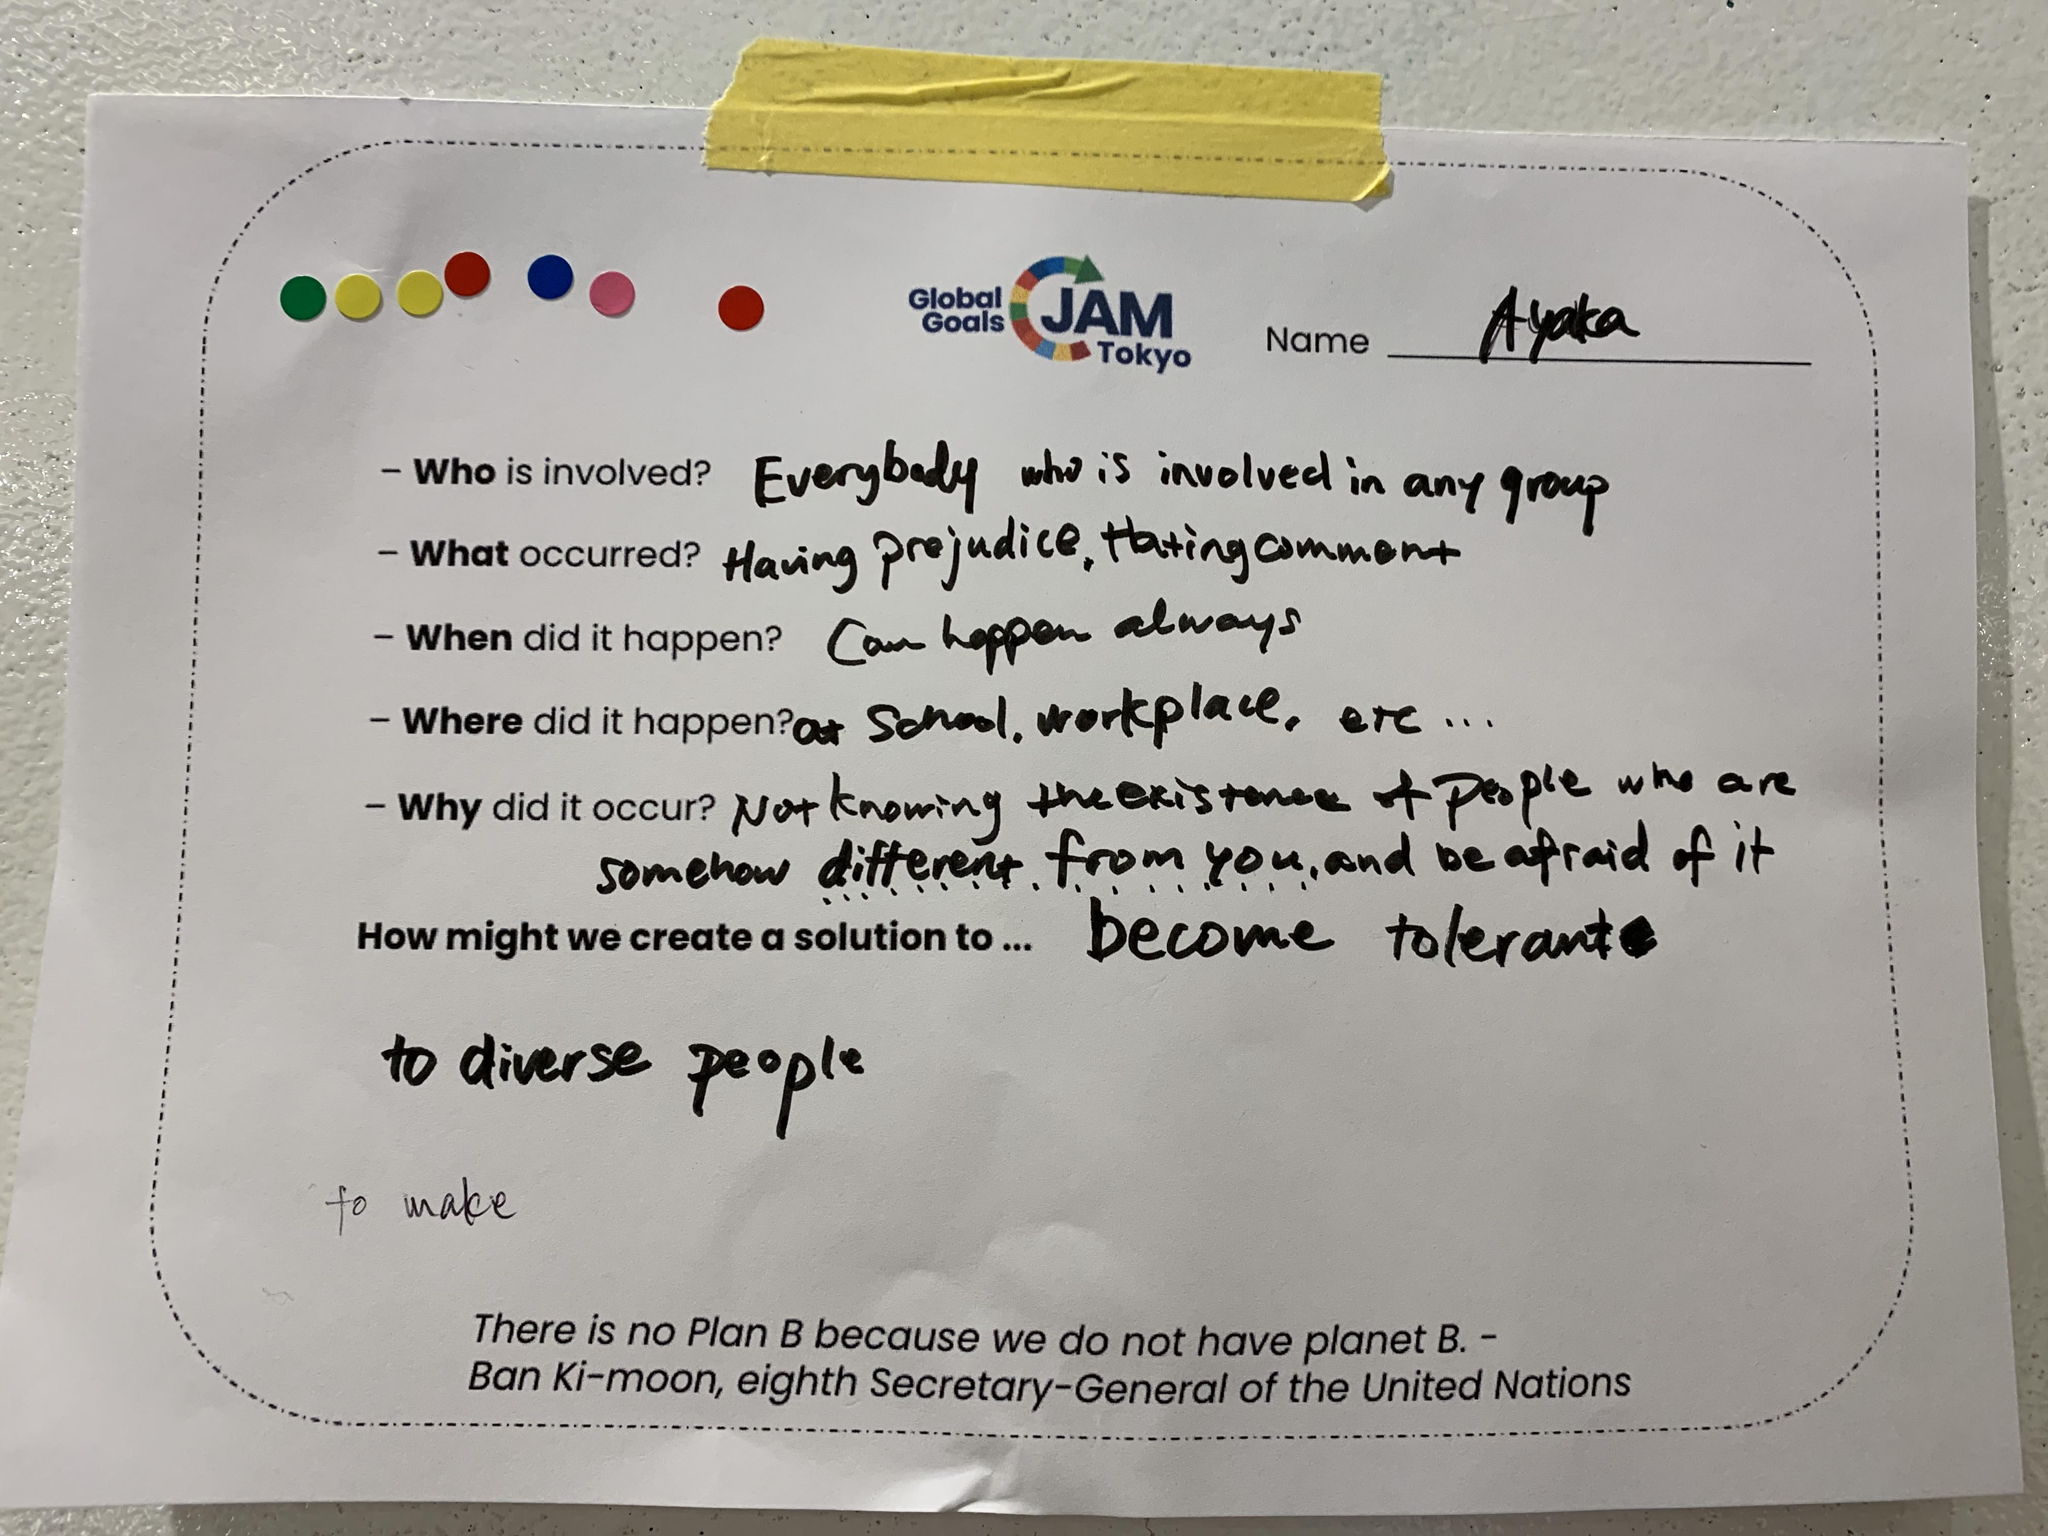 Global Goals JAM Tokyo
Name Ayaka
– Who is involved? Everybody who is involved in any group
– What occurred? Having prejudice, Hating comment
– When did it happen? Can happen always
– Where did it happen? at School, workplace, etc ...
– Why did it occur? Not knowing the existence of people who are
somehow different from you, and be afraid of it
How might we create a solution to ... become tolerant
to diverse people
to make
There is no Plan B because we do not have planet B. –
Ban Ki-moon, eighth Secretary-General of the United Nations